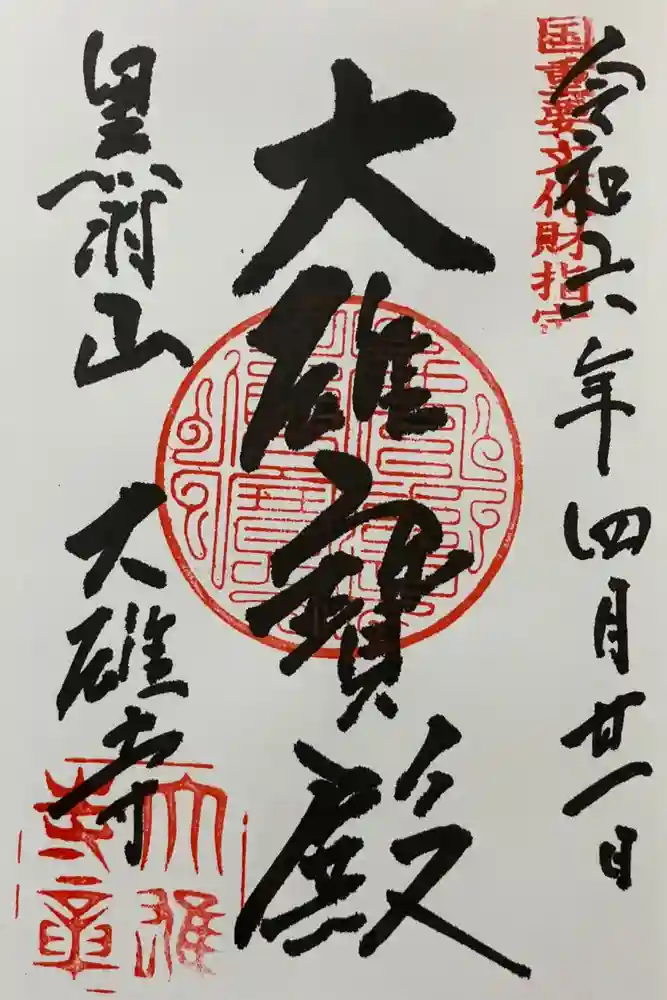 国重要文化財指定
令和六年四月廿一日
大雄寳殿
黒羽山
大雄寺
大雄
寺章